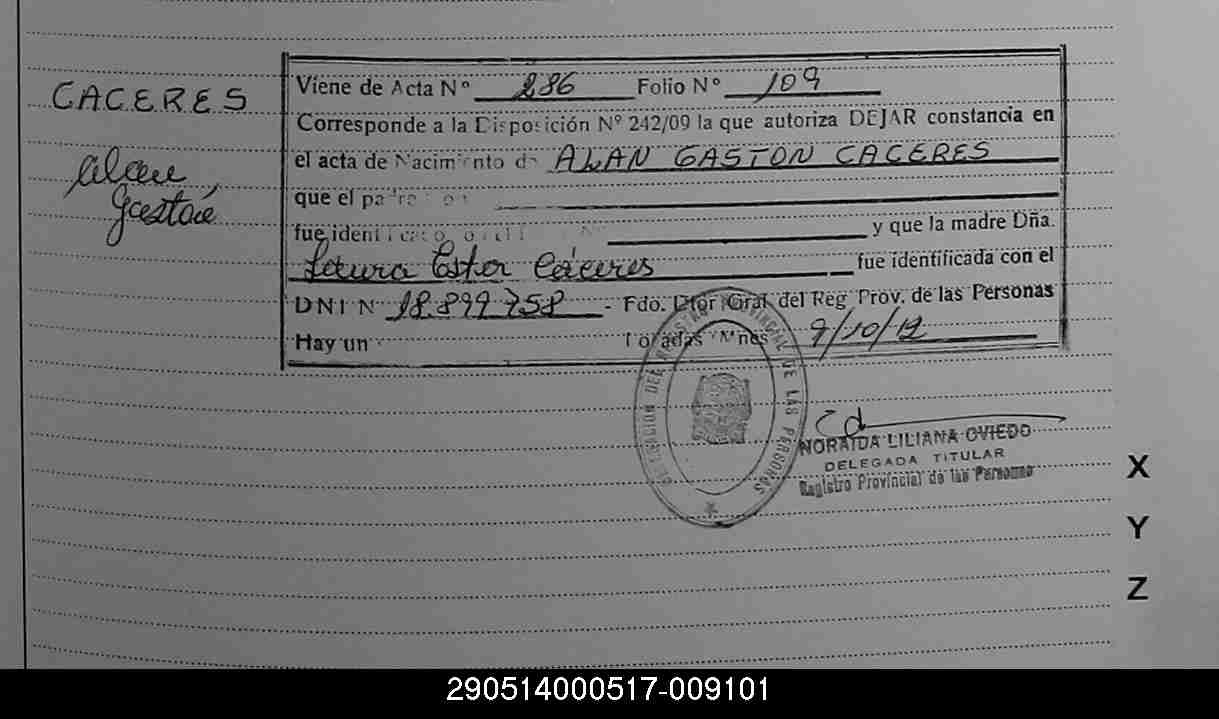 CACERES
Alan
Gastón
Viene de Acta Nº 286 Folio Nº 109
Corresponde a la Disposición Nº 242/09 la que autoriza DEJAR constancia en
el acta de Nacimiento de ALAN GASTON CACERES
que el padre Don
fue identificado y que la madre Dña.
Laura Ester Cáceres fue identificada con el
DNI Nº 18.899.758 - Fdo. Dtor Gral del Reg Prov. de las Personas
Hay un 9/10/12
DELEGACION DEL REGISTRO PROVINCIAL DE LAS PERSONAS
NORAIDA LILIANA OVIEDO
DELEGADA TITULAR
Registro Provincial de las Personas
X
Y
Z
290514000517-009101